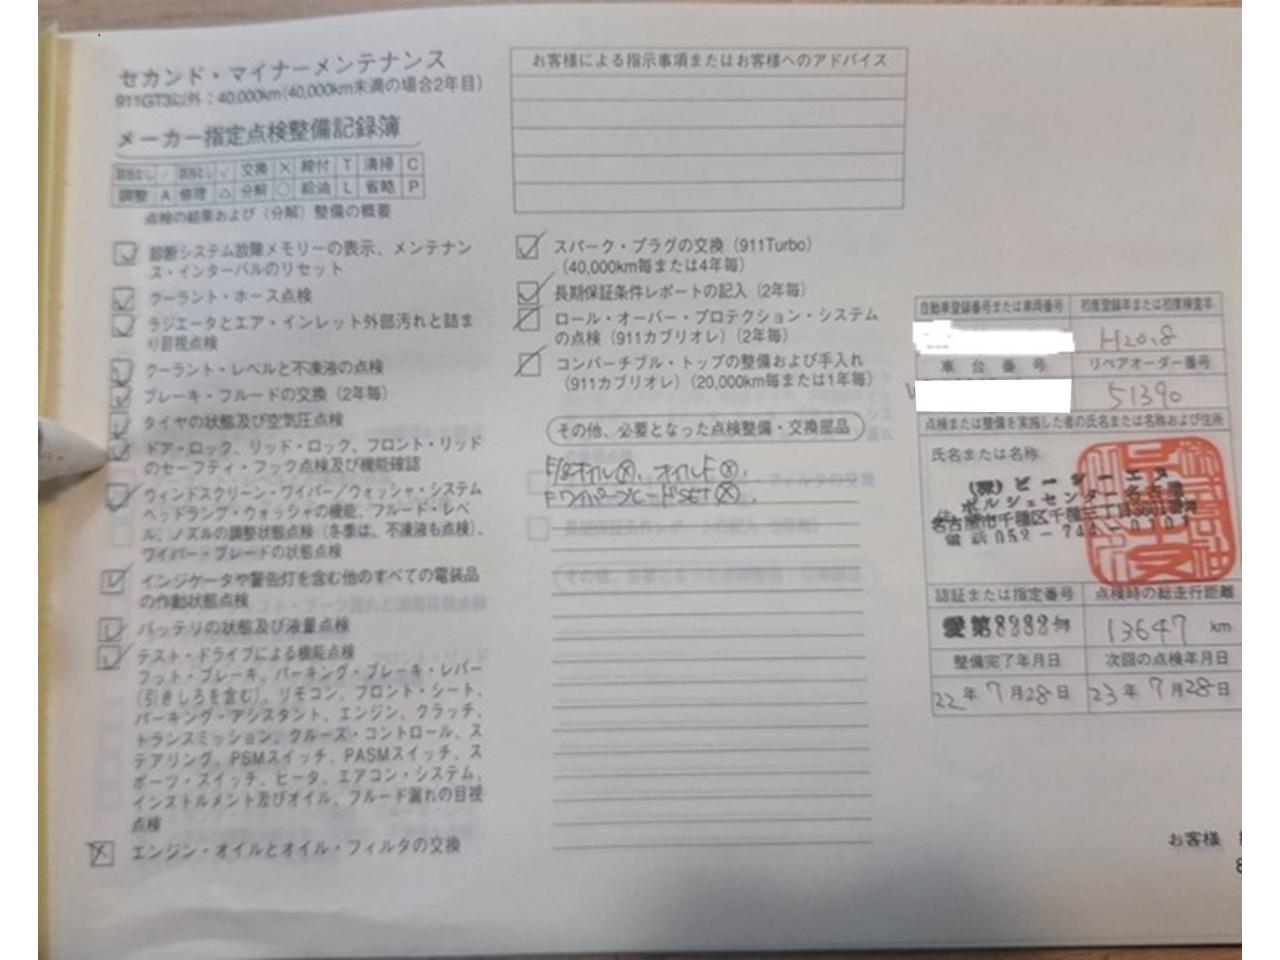 セカンド・マイナーメンテナンス
911GT3以外：40,000km(40,000km未満の場合2年目)
メーカー指定点検整備記録簿
交換 X 締付 T 清掃 C
調整 A 修理 △ 分解 ○ 給油 L 省略 P
点検の結果および（分解）整備の概要
診断システム故障メモリーの表示、メンテナン
ス・インターバルのリセット
クーラント・ホース点検
ラジエータとエア・インレット外部汚れと詰ま
り目視点検
クーラント・レベルと不凍液の点検
ブレーキ・フルードの交換（2年毎）
タイヤの状態及び空気圧点検
ドア・ロック、リッド・ロック、フロント・リッド
のセーフティ・フック点検及び機能確認
ウィンドスクリーン・ワイパー／ウォッシャ・システム
ヘッドランプ・ウォッシャの機能、フルード・レベ
ル、ノズルの調整状態点検（冬季は、不凍液も点検）、
ワイパー・ブレードの状態点検
インジケータや警告灯を含む他のすべての電装品
の作動状態点検
バッテリの状態及び液量点検
テスト・ドライブによる機能点検
フット・ブレーキ、パーキング・ブレーキ・レバー
（引きしろを含む）、リモコン、フロント・シート、
パーキング・アシスタント、エンジン、クラッチ、
トランスミッション、クルーズ・コントロール、ス
テアリング、PSMスイッチ、PASMスイッチ、ス
ポーツ・スイッチ、ヒータ、エアコン・システム、
インストルメント及びオイル、フルード漏れの目視
点検
エンジン・オイルとオイル・フィルタの交換
お客様による指示事項またはお客様へのアドバイス
スパーク・プラグの交換（911Turbo）
（40,000km毎または4年毎）
長期保証条件レポートの記入（2年毎）
ロール・オーバー・プロテクション・システム
の点検（911カブリオレ）（2年毎）
コンバーチブル・トップの整備および手入れ
（911カブリオレ）（20,000km毎または1年毎）
その他、必要となった点検整備・交換部品
オイル⊗、オイルF⊗、
FワイパーブレードSET⊗、
自動車登録番号または車両番号 初度登録年または初度検査年
H20.8
車台番号 リペアオーダー番号
51390
点検または整備を実施した者の氏名または名称および住所
氏名または名称
(株) ピーシーエヌ
ポルシェセンター名古屋
名古屋市千種区千種三丁目3601番地
電話052-744-0101
認証または指定番号 点検時の総走行距離
13647 km
整備完了年月日 次回の点検年月日
22年7月28日 23年7月28日
お客様